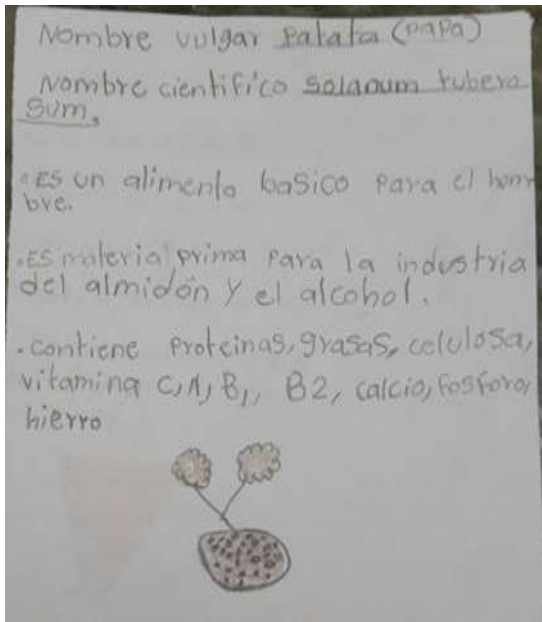 Nombre vulgar Patata (PaPa)
Nombre cientifico Solanum tubero
Sum.
• ES un alimento basico Para el hom
bre.
• ES material prima Para la industria
del almidón y el alcohol.
• contiene Proteinas, grasas, celulosa,
vitamina C, A, B1, B2, calcio, fosforo,
hierro